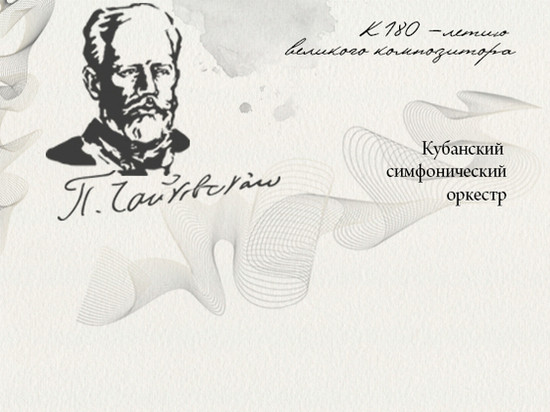 К 180 –летию
великого композитора
Кубанский
симфонический
оркестр
П. Чайковский